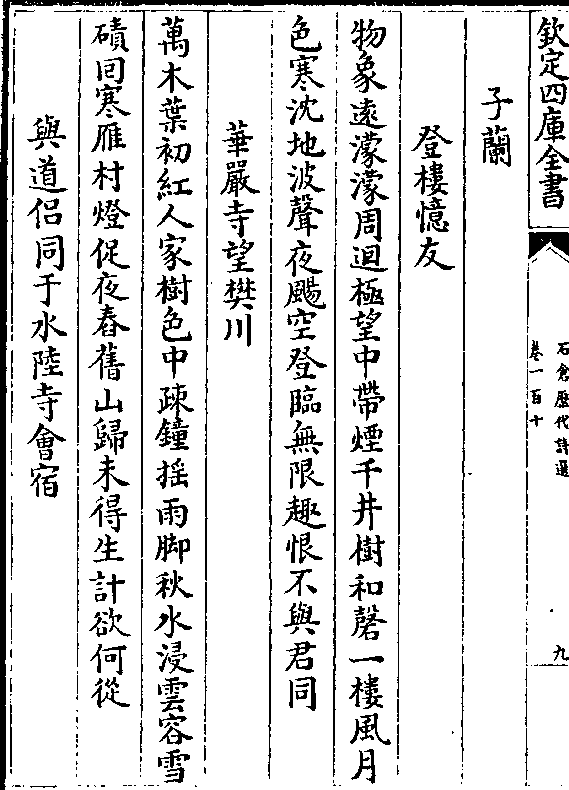 欽定四庫全書
石倉歷代詩選
卷一百十
九
子蘭
登樓憶友
物象遠濛濛周迴極望中帶煙千井樹和磬一樓風月
色寒沈地波聲夜颺空登臨無限趣恨不與君同
華嚴寺望樊川
萬木葉初紅人家樹色中疎鐘搖雨脚秋水浸雲容雪
磧回寒雁村燈促夜舂舊山歸未得生計欲何從
與道侶同于水陸寺會宿